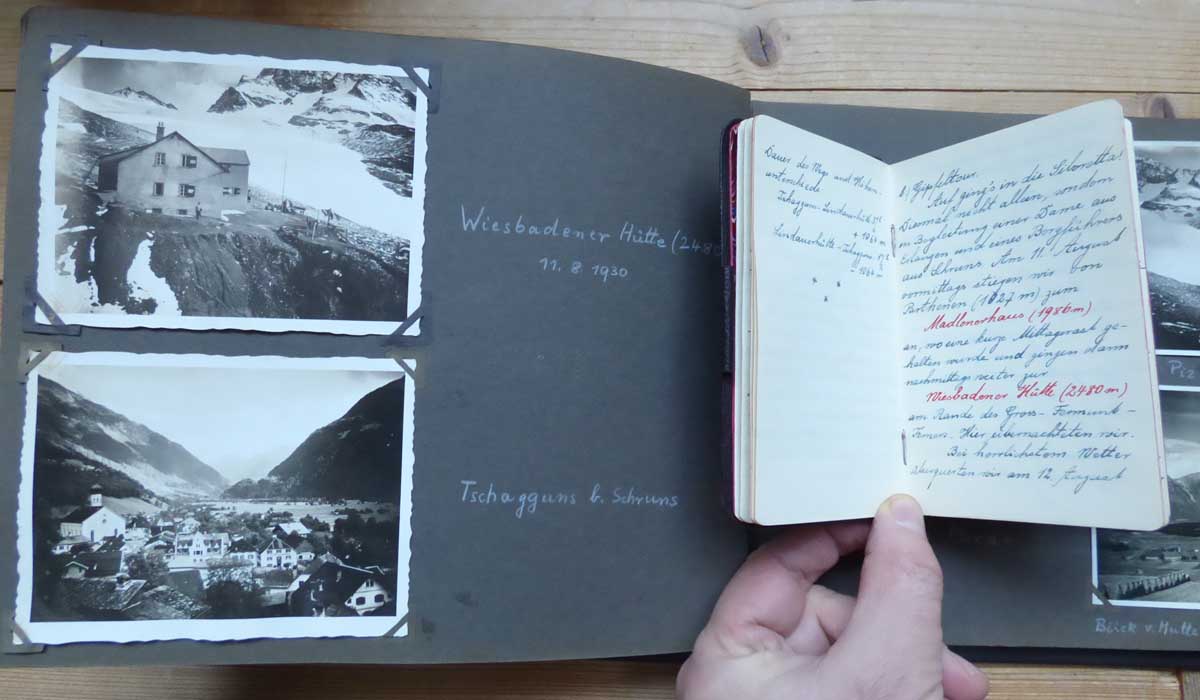 Wiesbadener Hütte (2480
11. 8. 1930
Tschagguns b. Schruns
Dauer des Wegs und Höhen-
unterschiede
Tschagguns-Lindauerhütte
Lindauerhütte-Tschagguns
b) Gipfeltour.
Auf ging's in die Silvretta!
Diesmal nicht allein, sondern
in Begleitung einer Dame aus
Erlangen und eines Bergführers
aus Schruns. Am 11. August
vormittags stiegen wir von
Parthenen (1027 m) zum
Madlenerhaus (1986 m)
an, wo eine kurze Mittagsrast ge-
halten wurde und gingen dann
nachmittags weiter zur
Wiesbadener Hütte (2480 m)
am Rande des Gross-Fermunt-
Ferners. Hier übernachteten wir.
Bei herrlichstem Wetter
überquerten wir am 12. August
Piz
Blick v. Hütte